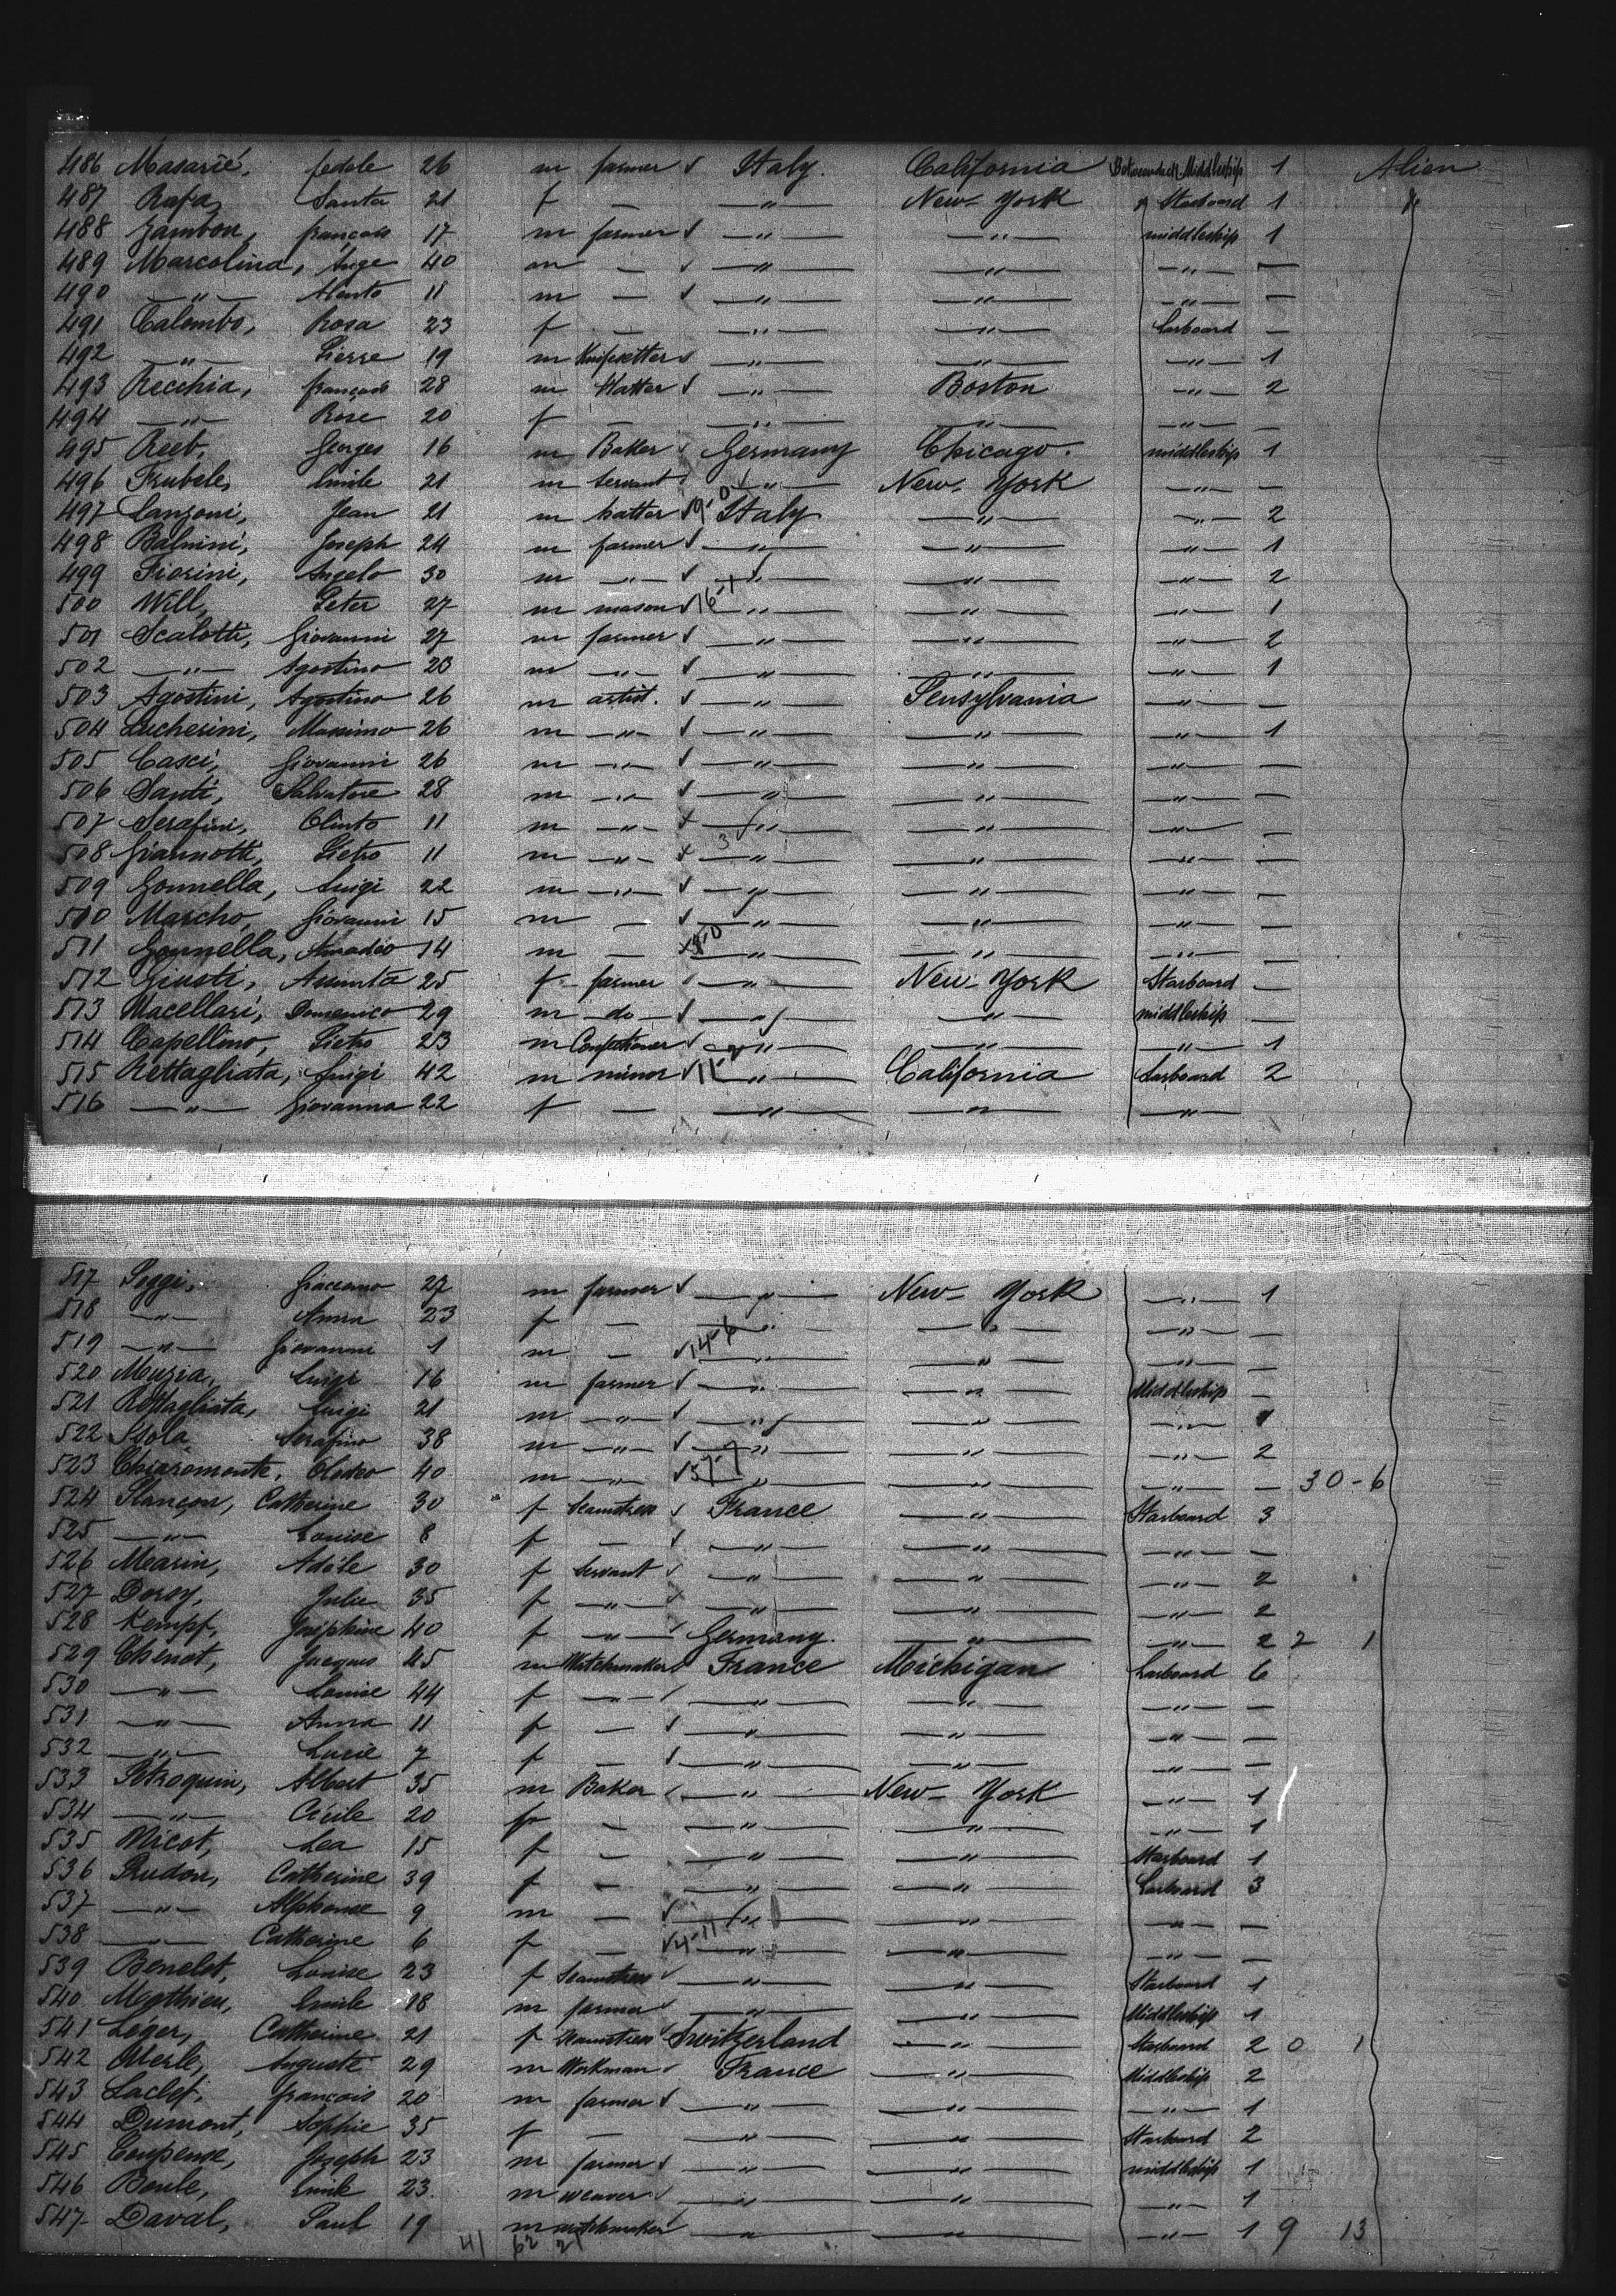 486 Masarié, fedele 26 m farmer √ Italy. California Betweendeck Middleship 1 Alien
487 Rafa, Santa 21 f — —"— New-York " Starboard 1 "
488 Zambon, françois 17 m farmer √ —"— —"— middleship 1
489 Marcolina, Ange 40 m — √ —"— —"— —"— —
490 —"— 11 m — √ —"— —"— —"— —
491 Colombo, Rosa 23 f — —"— —"— Larboard —
492 —"— Pierre 19 m √ —"— —"— —"— 1
493 Recchia, françois 28 m Hatter √ —"— Boston —"— 2
494 —"— Rose 20 f — —"— —"— —"— —
495 Reeb, Georges 16 m Baker √ Germany Chicago. middleship 1
496 Frubele, Emile 21 m Servant √ —"— New-York —"— —
497 Lanzoni, Jean 21 m hatter √ 9-0 Italy —"— —"— 2
498 Balnini, Joseph 24 m farmer √ —"— —"— —"— 1
499 Fiorini, Angelo 30 m —"— √ —"— —"— —"— 2
500 Will, Peter 27 m mason √ 16-1 —"— —"— —"— 1
501 Scalotti, Giovanni 27 m farmer √ —"— —"— —"— 2
502 —"— Agostino 23 m —"— √ —"— —"— —"— 1
503 Agostini, Agostino 26 m artist. √ —"— Pensylvania —"— —
504 Lucherini, Massimo 26 m —"— √ —"— —"— —"— 1
505 Casci, Giovanni 26 m —"— √ —"— —"— —"— —
506 Santi, Salvatore 28 m —"— √ —"— —"— —"— —
507 Serafini, Olinto 11 m —"— x —"— —"— —"— —
508 Giannotti, Pietro 11 m —"— x 3 —"— —"— —"— —
509 Gonnella, Luigi 22 m —"— √ —"— —"— —"— —
510 Marcho, Giovanni 15 m — √ —"— —"— —"— —
511 Gonnella, Amadeo 14 m — x —"— —"— —"— —
512 Giusti, Assunta 25 f farmer √ —"— New-York Starboard —
513 Macellari, Domenico 29 m —do— √ —"— —"— middleship —
514 Capellino, Pietro 23 m Confectioner √ —"— —"— —"— 1
515 Rettagliata, Luigi 42 m minor √ —"— California Larboard 2
516 —"— Giovanna 22 f — —"— —"— —"—
517 Poggi, Giacomo 27 m farmer √ —"— New-York —"— 1
518 —"— Anna 23 f — —"— —"— —"— —
519 —"— Giovanni 1 m — √ 14-6 —"— —"— —"— —
520 Muzia, Luigi 16 m farmer √ —"— —"— Middleship —
521 Rettagliata, Luigi 21 m —"— √ —"— —"— —"— 1
522 Isola Serafino 38 m —"— √ —"— —"— —"— 2
523 Chiaromonte, 40 m —"— √ 57-7 —"— —"— —"— — 30-6
524 Plançon, Catherine 30 f Seamstress √ France —"— Starboard 3
525 —"— Louise 8 f — √ —"— —"— —"— —
526 Mearin, Adèle 30 f Servant √ —"— —"— —"— 2
527 Dorsy, Julie 35 f —"— √ —"— —"— —"— 2
528 Kempf, Joséphine 40 f —"— √ Germany. —"— —"— 2 2 1
529 Chenot, Jacques 45 m Watchmaker √ France Michigan Larboard 6
530 —"— Louise 44 f —"— √ —"— —"— —"— —
531 —"— Anna 11 f — √ —"— —"— —"— —
532 —"— Lucie 7 f — √ —"— —"— —"— —
533 Pétroquin, Albert 35 m Baker √ —"— New-York —"— 1
534 —"— Cécile 20 f — —"— —"— —"— 1
535 Nicot, Lea 15 f — —"— —"— Starboard 1
536 Prudon, Catherine 39 f — —"— —"— Larboard 3
537 —"— Alphonse 9 m — √ —"— —"— —"— —
538 —"— Catherine 6 f — √ 4-11 —"— —"— —"— —
539 Benelet, Louise 23 f Seamstress √ —"— —"— Starboard 1
540 Mathieu, Emile 18 m farmer √ —"— —"— Middleship 1
541 Léger, Catherine 21 f Seamstress √ Switzerland —"— Starboard 2 0 1
542 Merle, Auguste 29 m Workman √ France —"— Middleship 2
543 Laclef, françois 20 m farmer √ —"— —"— —"— 1
544 Dumont, Sophie 35 f — —"— —"— Starboard 2
545 Joseph 23 m farmer √ —"— —"— middleship 1
546 Boule, Emile 23. m weaver √ —"— —"— —"— 1
547 Daval, Paul 19 m watchmaker √ —"— —"— —"— 1 9 13
41 62 21